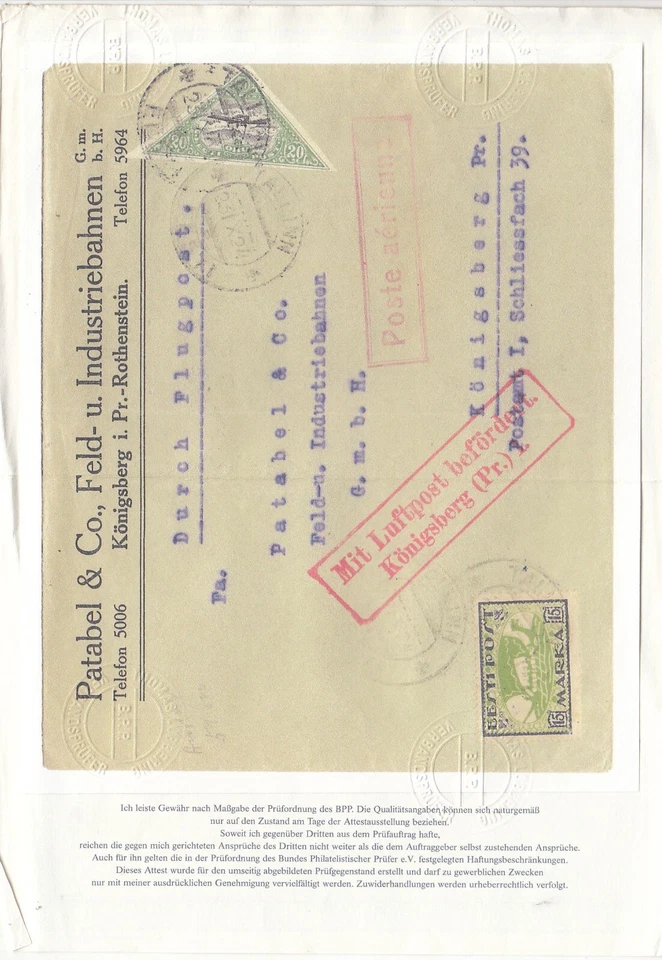 Patabel & Co., Feld- u. Industriebahnen G. m. b. H.
Telefon 5006 Königsberg i. Pr.-Rothenstein. Telefon 5964
Durch Flugpost.
Fa.
Patabel & Co.
Feld-u. Industriebahnen
G. m. b. H.
Königsberg Pr.
Postamt I, Schliessfach 39.
20
20
TALLINN
Poste aérienne
Mit Luftpost befördert.
Königsberg (Pr.)
EESTI POST
15 MARKA 15
VERBANDSPRÜFER
B.P.P.
VERBANDSPRÜFER
B.P.P.
VERBANDSPRÜFER
B.P.P.
VERBANDSPRÜFER
B.P.P.
Ich leiste Gewähr nach Maßgabe der Prüfordnung des BPP. Die Qualitätsangaben können sich naturgemäß
nur auf den Zustand am Tage der Attestausstellung beziehen.
Soweit ich gegenüber Dritten aus dem Prüfauftrag hafte,
reichen die gegen mich gerichteten Ansprüche des Dritten nicht weiter als die dem Auftraggeber selbst zustehenden Ansprüche.
Auch für ihn gelten die in der Prüfordnung des Bundes Philatelistischer Prüfer e.V. festgelegten Haftungsbeschränkungen.
Dieses Attest wurde für den umseitig abgebildeten Prüfgegenstand erstellt und darf zu gewerblichen Zwecken
nur mit meiner ausdrücklichen Genehmigung vervielfältigt werden. Zuwiderhandlungen werden urheberrechtlich verfolgt.